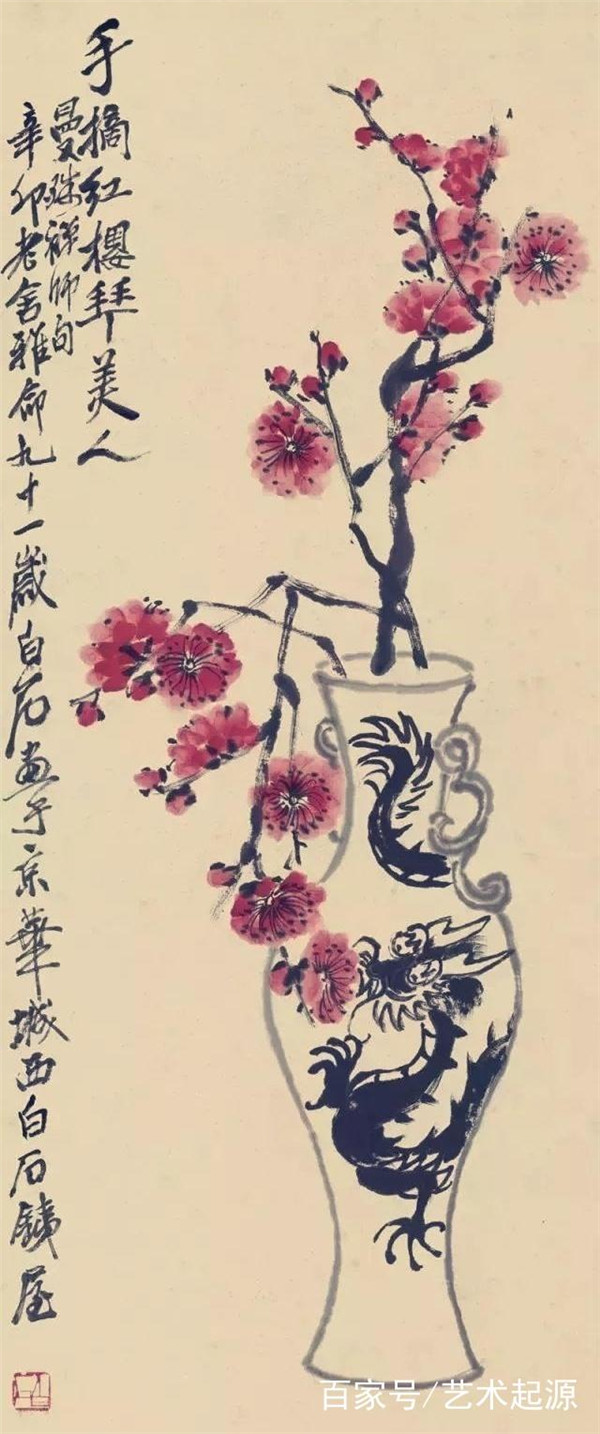 手摘紅櫻拜美人
曼殊禪師句
辛卯老舍雅命九十一歲白石畫于京華城西白石鐵屋
百家号/艺术起源